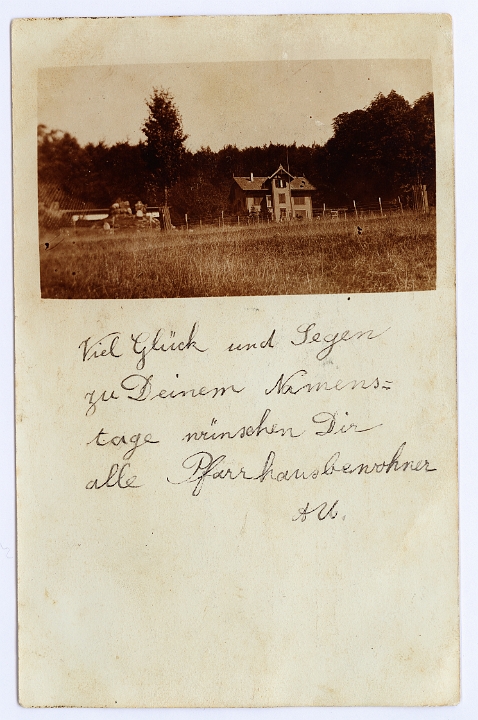 Viel Glück und Segen
zu Deinem Namens=
tage wünschen Dir
alle Pfarrhausbewohner
AU.